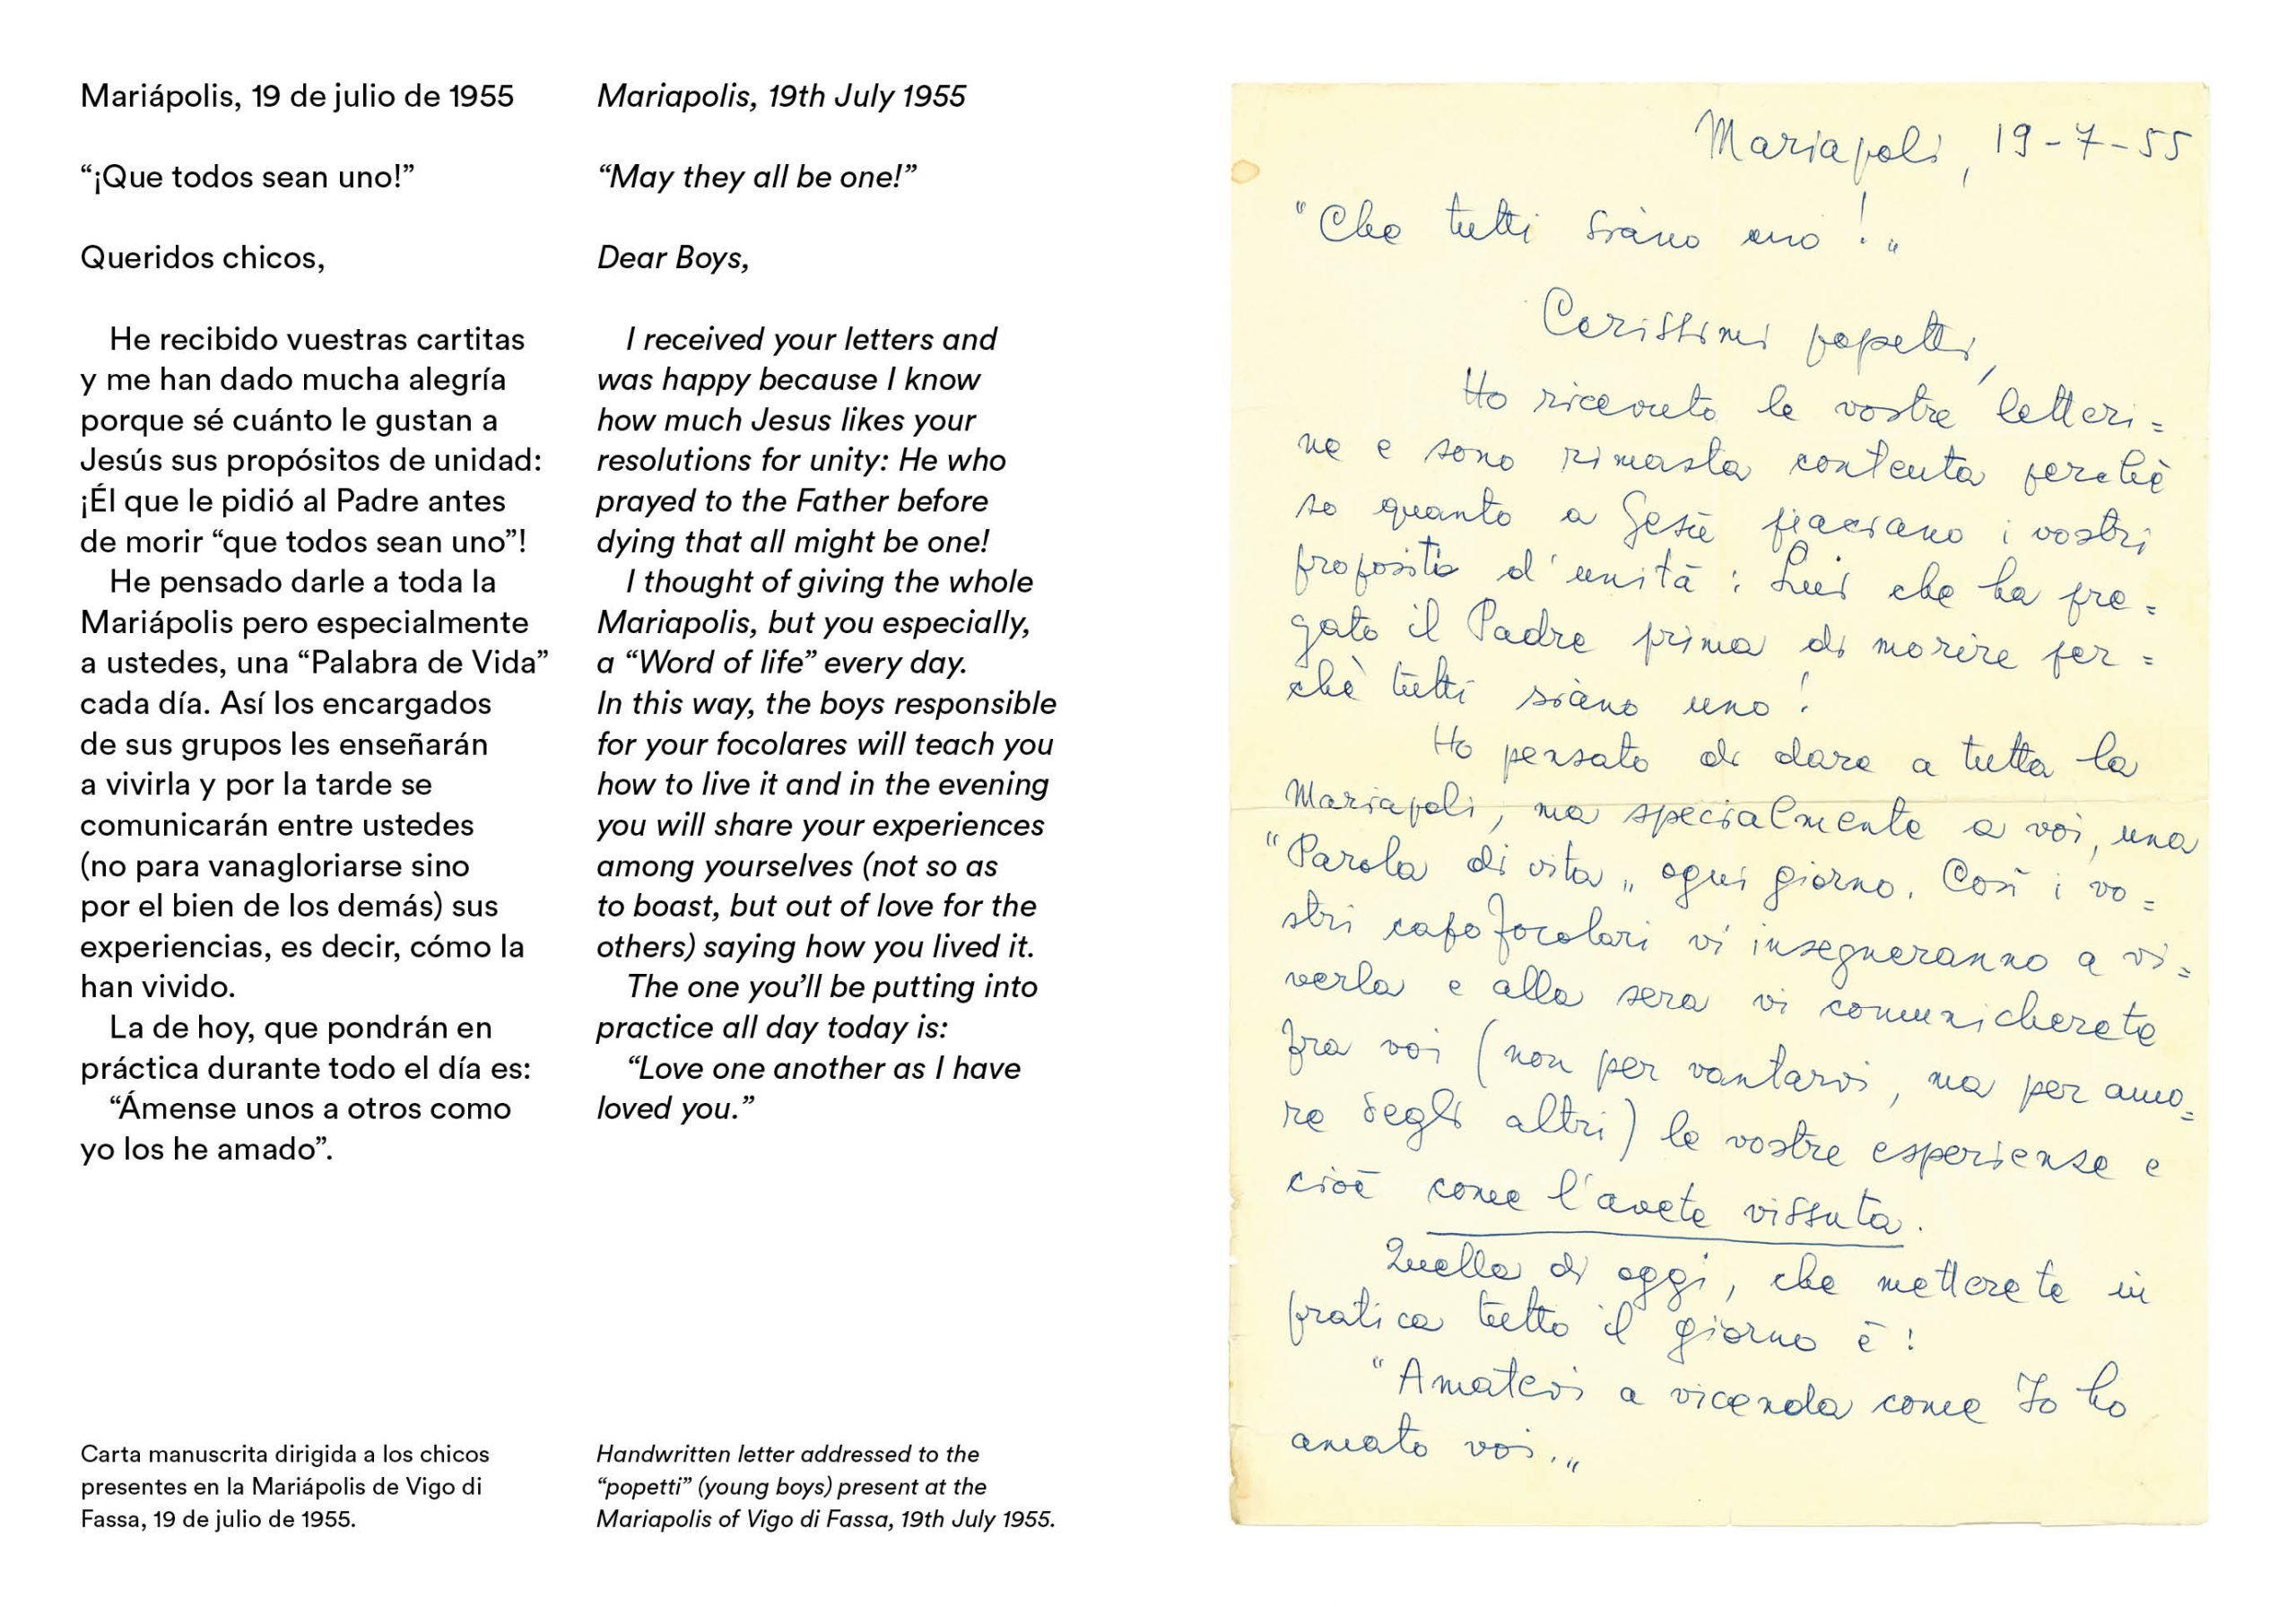 Mariápolis, 19 de julio de 1955
“¡Que todos sean uno!”
Queridos chicos,
He recibido vuestras cartitas
y me han dado mucha alegría
porque sé cuánto le gustan a
Jesús sus propósitos de unidad:
¡Él que le pidió al Padre antes
de morir “que todos sean uno”!
He pensado darle a toda la
Mariápolis pero especialmente
a ustedes, una “Palabra de Vida”
cada día. Así los encargados
de sus grupos les enseñarán
a vivirla y por la tarde se
comunicarán entre ustedes
(no para vanagloriarse sino
por el bien de los demás) sus
experiencias, es decir, cómo la
han vivido.
La de hoy, que pondrán en
práctica durante todo el día es:
“Ámense unos a otros como
yo los he amado”.
Carta manuscrita dirigida a los chicos
presentes en la Mariápolis de Vigo di
Fassa, 19 de julio de 1955.
Mariapolis, 19th July 1955
“May they all be one!”
Dear Boys,
I received your letters and
was happy because I know
how much Jesus likes your
resolutions for unity: He who
prayed to the Father before
dying that all might be one!
I thought of giving the whole
Mariapolis, but you especially,
a “Word of life” every day.
In this way, the boys responsible
for your focolares will teach you
how to live it and in the evening
you will share your experiences
among yourselves (not so as
to boast, but out of love for the
others) saying how you lived it.
The one you’ll be putting into
practice all day today is:
“Love one another as I have
loved you.”
Handwritten letter addressed to the
“popetti” (young boys) present at the
Mariapolis of Vigo di Fassa, 19th July 1955.
Mariapoli, 19-7-55
"Che tutti siano uno!"
Carissimi popetti,
Ho ricevuto le vostre letteri=
ne e sono rimasta contenta perchè
so quanto a Gesù piacciano i vostri
propositi d'unità: Lui che ha pre=
gato il Padre prima di morire per=
chè tutti siano uno!
Ho pensato di dare a tutta la
Mariapoli, ma specialmente a voi, una
"Parola di vita" ogni giorno. Così i vo=
stri capofocolari vi insegneranno a vi=
verla e alla sera vi comunicherete
fra voi (non per vantarvi, ma per amo=
re degli altri) le vostre esperienze e
cioè come l'avete vissuta.
Quella di oggi, che metterete in
pratica tutto il giorno è:
"Amatevi a vicenda come Io ho
amato voi."